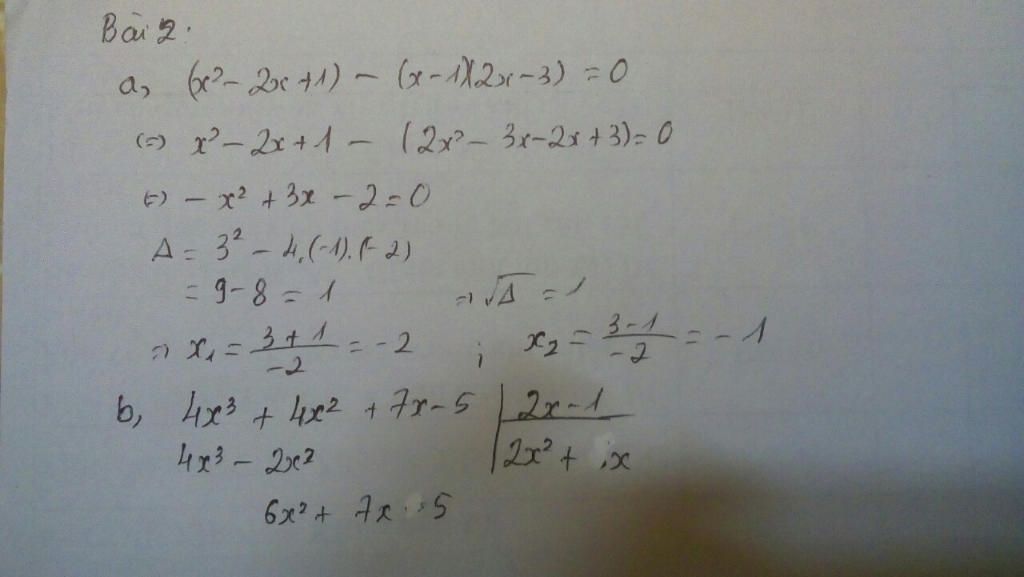 Bài 2.
a, (x² - 2x + 1) - (x - 1)(2x - 3) = 0
(=) x² - 2x + 1 - (2x² - 3x - 2x + 3) = 0
(=) - x² + 3x - 2 = 0
Δ = 3² - 4.(-1).(-2)
= 9 - 8 = 1 => √Δ = 1
=> x₁ = (3 + 1)/(-2) = -2 ; x₂ = (3 - 1)/(-2) = -1
b, 4x³ + 4x² + 7x - 5 | 2x - 1
4x³ - 2x² | 2x² + x
6x² + 7x 5